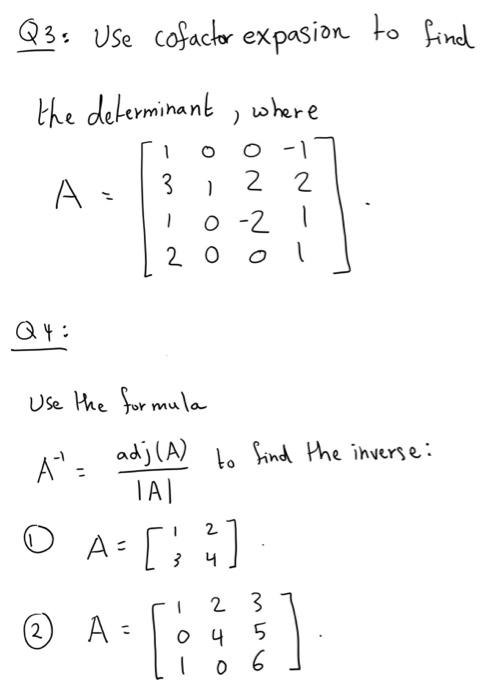 Q3: Use cofactor expasion to find
the determinant, where
A = [ 1 0 0 -1
3 1 2 2
1 0 -2 1
2 0 0 1 ].
Q4:
Use the formula
A⁻¹ = adj(A) / |A| to find the inverse:
① A = [ 1 2
3 4 ].
② A = [ 1 2 3
0 4 5
1 0 6 ].